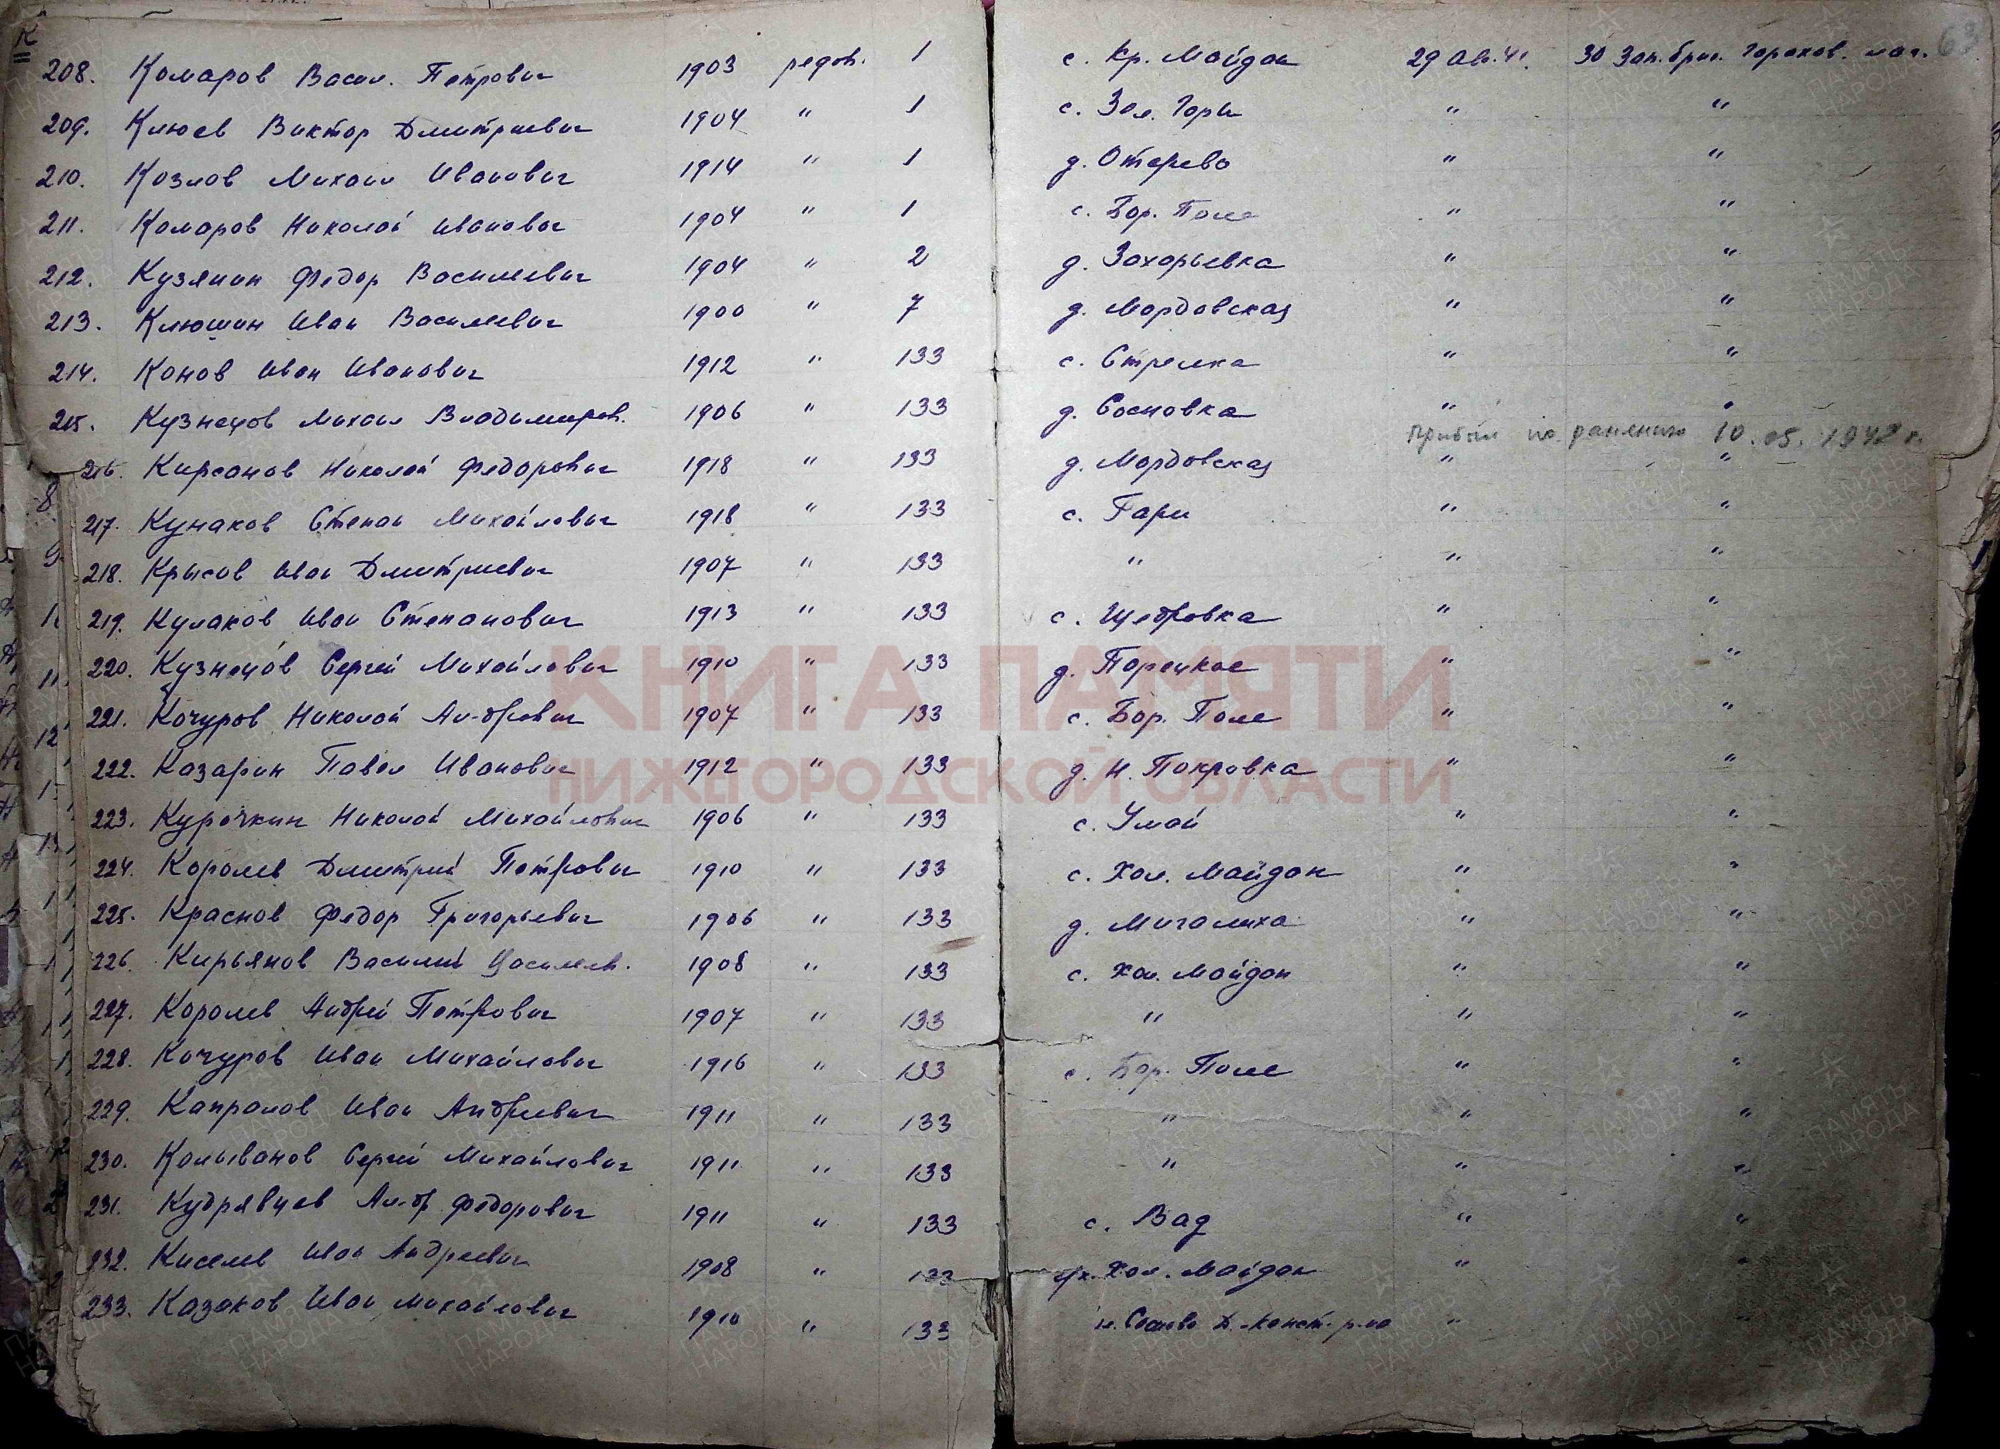 К 63
208. Комаров Васил. Петрович 1903 рядов. 1 с. Кр. Майдан 29 Ав. 41. 30 Зап. бриг. Горохов. лаг.
209. Клюев Виктор Дмитриевич 1904 " 1 с. Зел. Горы " "
210. Козлов Михаил Иванович 1914 " 1 д. Отарево " "
211. Комаров Николай Иванович 1904 " 1 с. Бор. Поле " "
212. Кузянин Федор Васильевич 1904 " 2 д. Захарьевка " "
213. Клюшин Иван Васильевич 1900 " 7 д. Мордовская " "
214. Конов Иван Иванович 1912 " 133 с. Стрелка " "
215. Кузнецов Михаил Владимиров. 1906 " 133 д. Сосновка " "
Прибыл по ранению 10.05.1942 г.
216. Кирсанов Николай Федорович 1918 " 133 д. Мордовская " "
217. Кунаков Степан Михайлович 1918 " 133 с. Гари " "
218. Крысов Иван Дмитриевич 1907 " 133 " " "
219. Кулаков Иван Степанович 1913 " 133 с. Щедровка " "
220. Кузнецов Сергей Михайлович 1910 " 133 д. Порецкое " "
221. Кочуров Николай Ал-дрович 1907 " 133 с. Бор. Поле " "
222. Казарин Павел Иванович 1912 " 133 д. Н. Покровка " "
223. Курочкин Николай Михайлович 1906 " 133 с. Умай " "
224. Королев Дмитрий Петрович 1910 " 133 с. Хол. Майдан " "
225. Краснов Федор Григорьевич 1906 " 133 д. Мигалиха " "
226. Кирьянов Василий Васильев. 1908 " 133 с. Хол. Майдан " "
227. Королев Андрей Петрович 1907 " 133 " " "
228. Кочуров Иван Михайлович 1916 " 133 с. Бор. Поле " "
229. Капралов Иван Андреевич 1911 " 133 " " "
230. Колыванов Сергей Михайлович 1911 " 133 " " "
231. Кудрявцев Ал-др Федорович 1911 " 133 с. Вад " "
232. Киселев Иван Андреевич 1908 " 133 Хол. Майдан " "
233. Казаков Иван Михайлович 1910 " 133 Д.-Конст. р-на " "
КНИГА ПАМЯТИ
НИЖЕГОРОДСКОЙ ОБЛАСТИ
ПАМЯТЬ НАРОДА